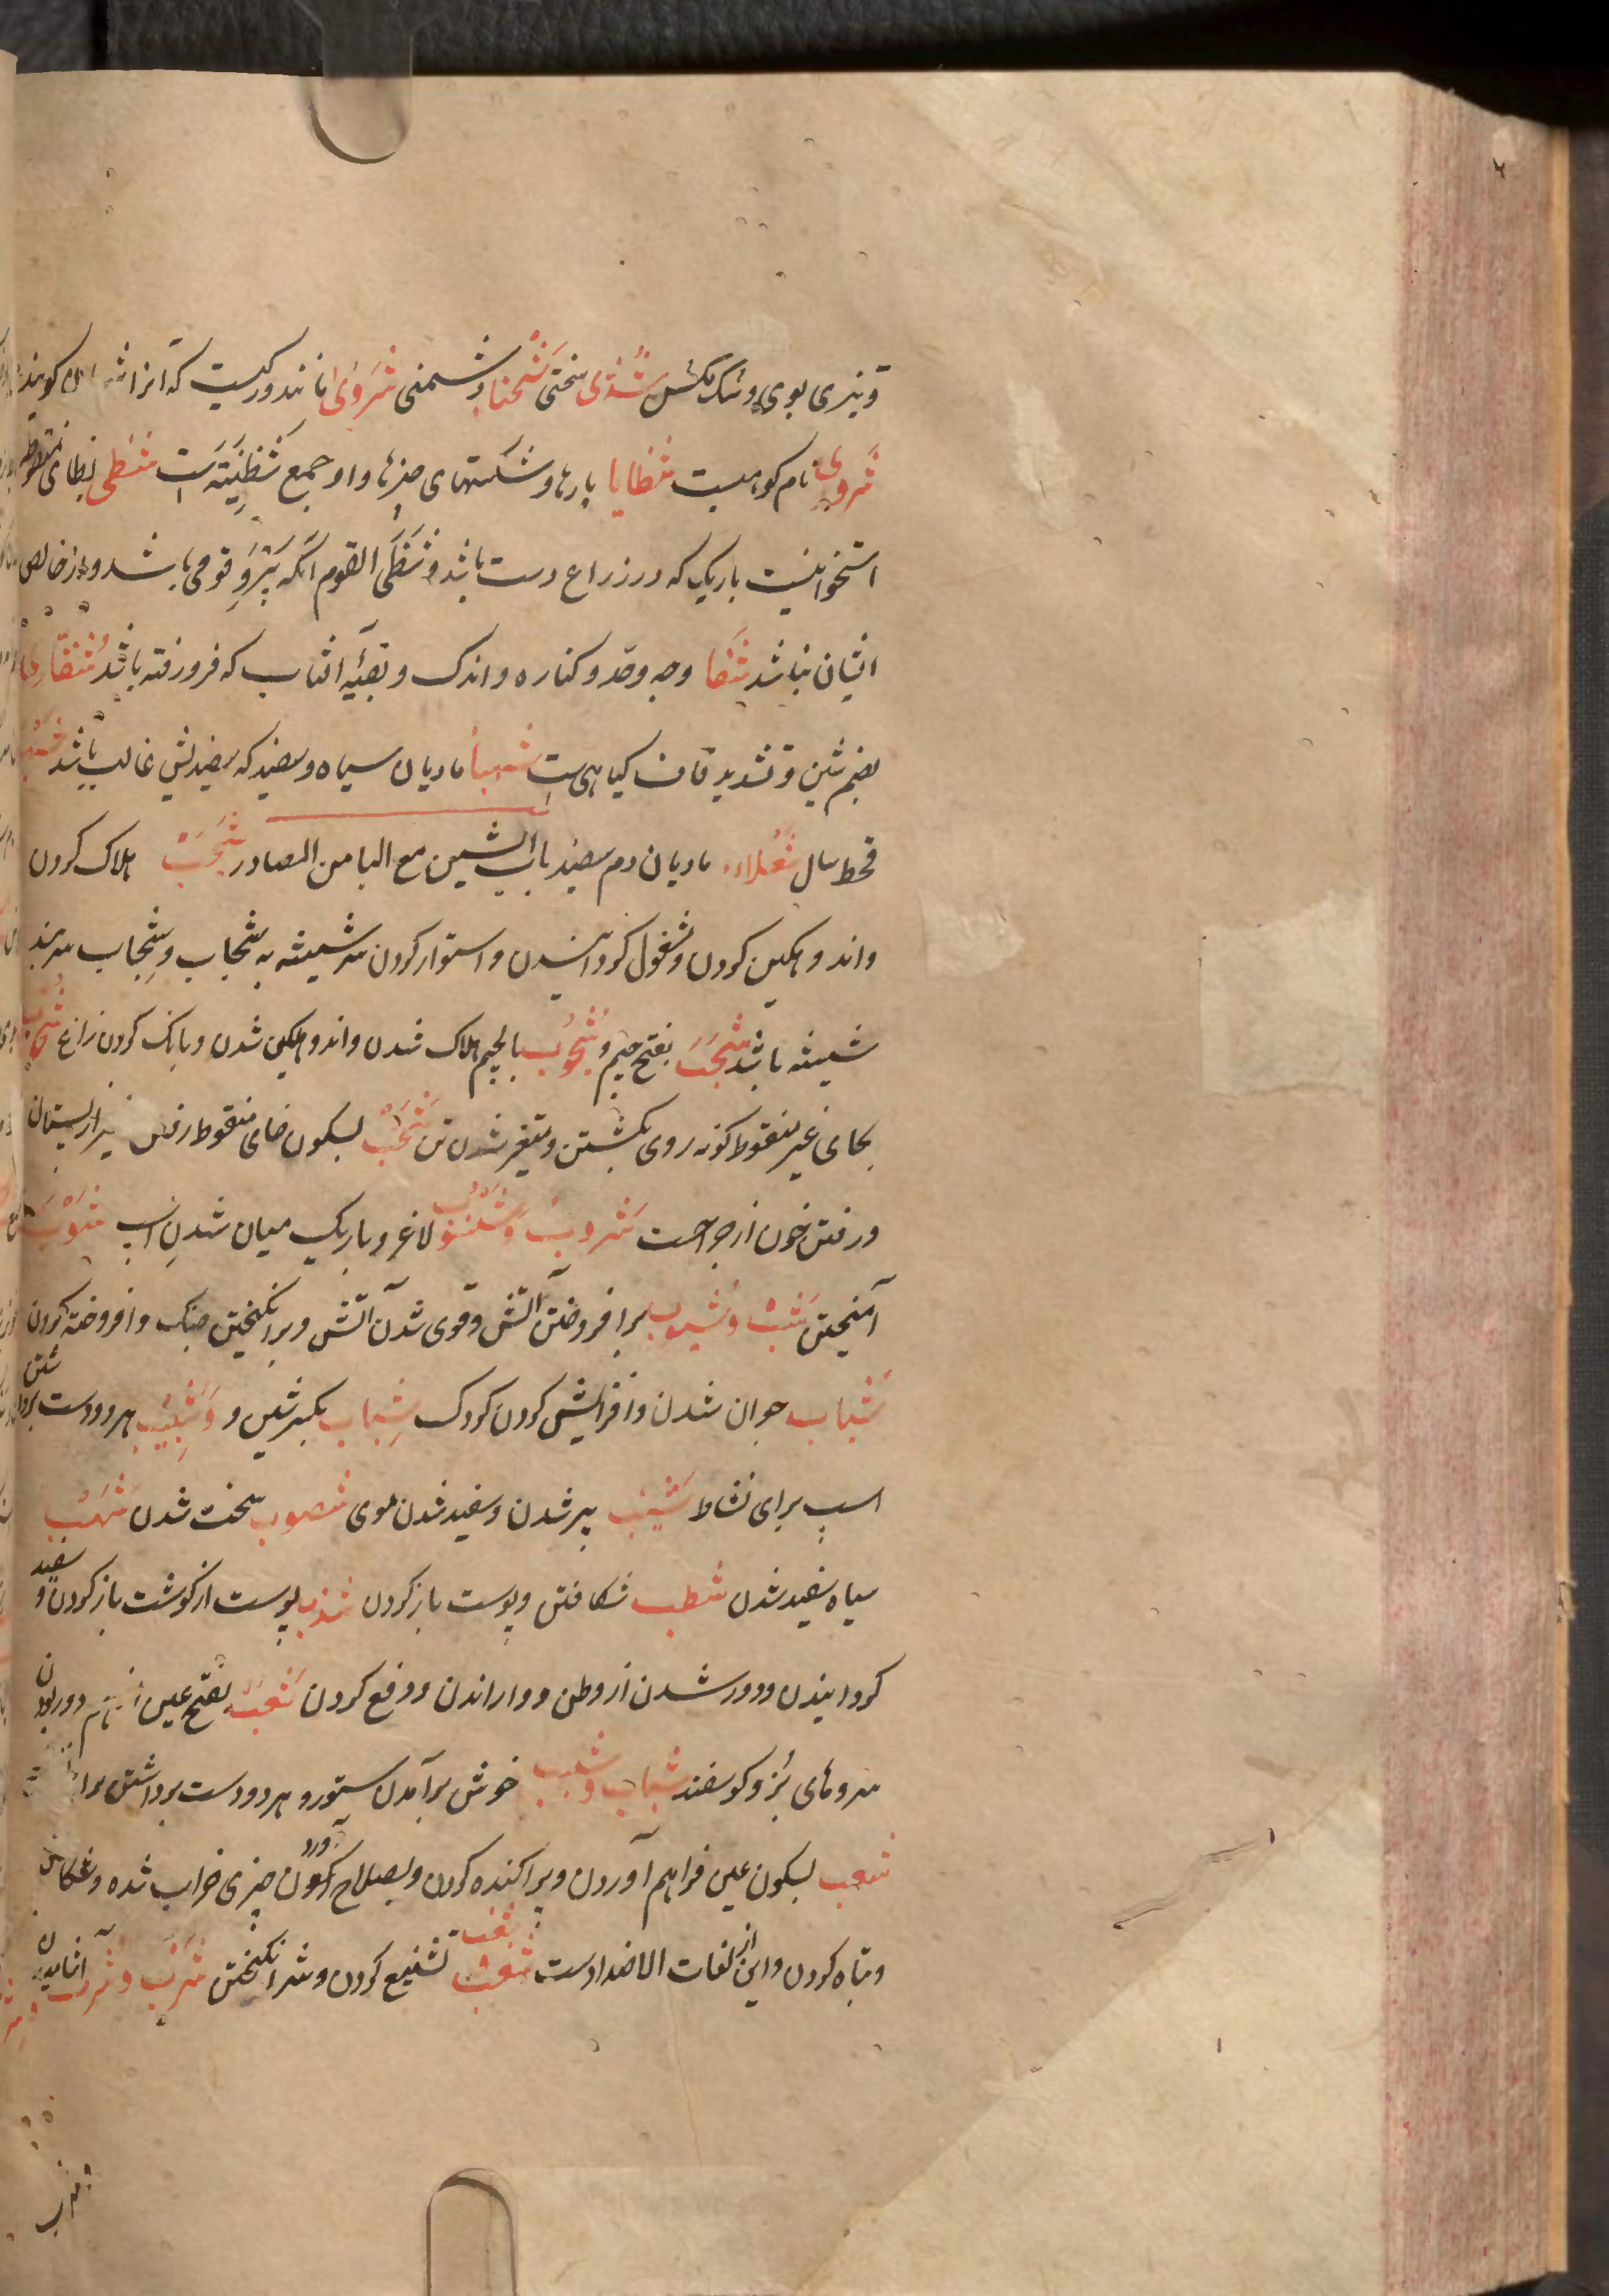 و تیزی بوی و سک مکس شَذی سختی شَحنا دشمنی شَروی مانند و رکیست که آنرا گویند
شَروی نام کوهیست شظایا پارها و شکستهای چیزها و او جمع شَظِیَّته است شظی بظای منقوطه
استخوانیست باریک که در زراع دست باشد و شَظَی القوم آنکه پَیْرَوِ قومی باشد و از خالص
ایشان نباشد شفا وجه و حد و کناره و اندک و بقیّه افتاب که فرو رفته باشد شُقّاری
بضم شین و تشدید قاف گیاهی ست شهبا مادیان سیاه و سفید که سفیدیش غالب باشد
قحط سال شعلاء مادیان دم سفید باب الشین مع البا من المصادر شَجَبَ هلاک کردن
و اندوهگین کردن و مشغول گردانیدن و استوار کردن سر شیشه به شجاب و شِجاب سربند
شیشه باشد شَجَبَ بفتح جیم و شُجُوب بالجیم هلاک شدن و اندوهگین شدن و بانک کردن زاغ شُحُوب
بحای غیر منقوط گونه روی بگشتن و متغیر شدن تن شَخْب بسکون خای منقوط رفتن شیر از پستان
و رفتن خون از جراحت شروب و شسوب لاغر و باریک میان شدنِ اسب شَوْبَ
آمیختن شَبّ و شُبوب برافروختن آتش و قوی شدن آتش و برانگیختن جنک و افروخته کردن
شَباب جوان شدن و افزایش کردن کودک شِباب بکسر شین و وَشَبِیْب هر دو دست برداشتن
اسب برای نشاط شَیْب پیر شدن و سفید شدن موی شصوب سخت شدن شَهَب
سیاه سفید شدن شطب شکافتن و پوست باز کردن شذب پوست از گوشت باز کردن و سفید
گردانیدن و دور شدن از وطن و واراندن و دفع کردن شَعَب بفتح عین دور بودن
سروهای بُز و گوسفند شباب و شبیب خوش برآمدن ستور و هر دو دست برداشتن
شعب بسکون عین فراهم آوردن و پراکنده کردن و بصلاح آوردن چیزی خراب شده و شکافتن
و تباه کردن و این از لغات الاضدادست شَغَب شغب تشنیع کردن و شر انگیختن شَرْب و شُرب آشامیدن
شرب